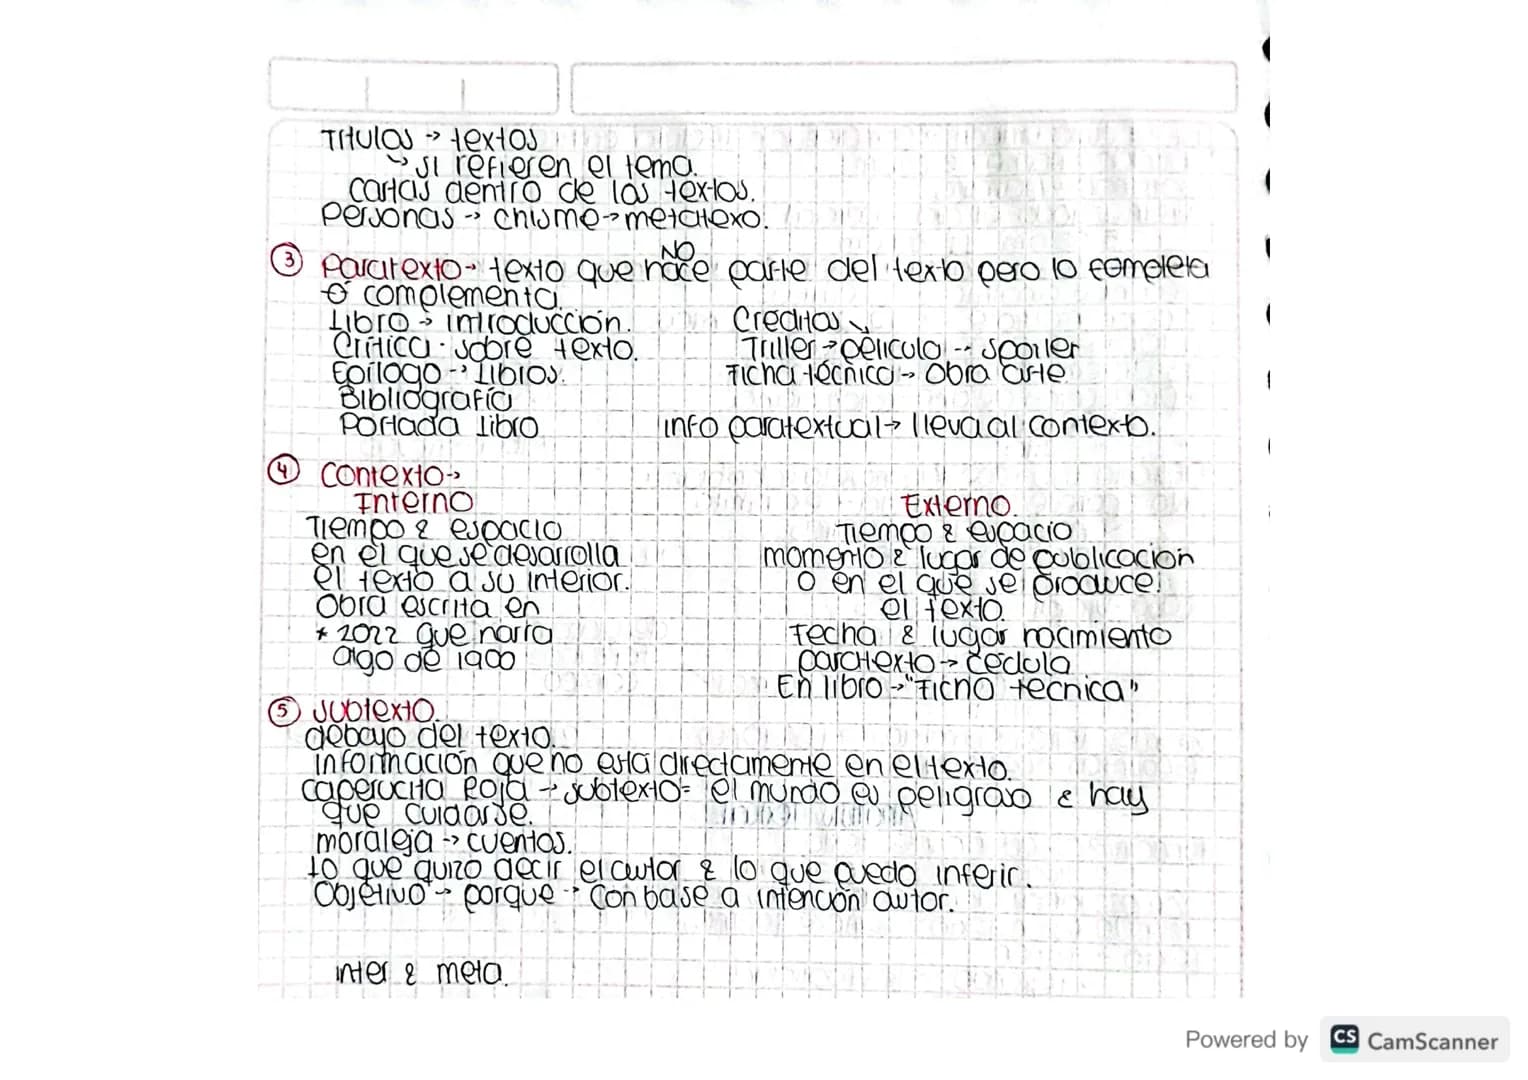 Títulos → textos
↳ si refieren el tema.
cartas dentro de los textos.
Personas → chisme → metatexo.
③ Paratexto → texto que NO hace parte del texto pero lo completa
o complementa.
Libro → introducción.
Crítica · sobre texto.
Epílogo → Libros.
Bibliografía
Portada libro
Créditos ↘
Triller → película → spoiler
Ficha técnica → Obra arte
info paratextual → lleva al contexto.
④ Contexto →
Interno
Tiempo & espacio
en el que se desarrolla
el texto a su interior.
Obra escrita en
* 2022 que narra
algo de 1900
Externo.
Tiempo & espacio
momento & lugar de publicación
o en el que se produce
el texto.
Fecha & lugar nacimiento
paratexto → cédula
En libro → "Ficha técnica"
⑤ Subtexto.
debayo del texto.
información que no está directamente en el texto.
caperucita Roja → subtexto = el mundo es peligroso & hay
que cuidarse.
moraleja → cuentos.
Lo que quizo decir el autor & lo que puedo inferir.
Objetivo → porque → Con base a intención autor.
inter & meta.
Powered by CS CamScanner